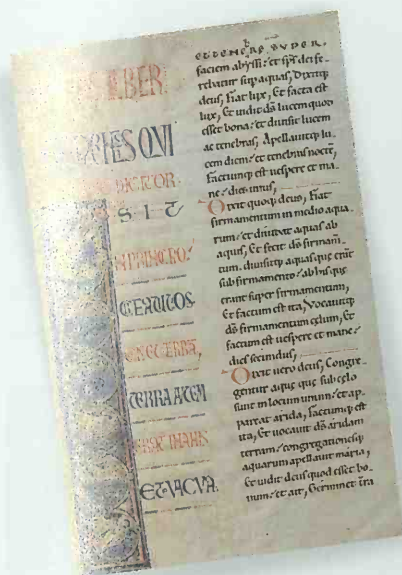 LIBER
QVI
DICITOR
SIT
IN PRINCIPIO
CREAVIT DS
CELV ET TERRA,
TERRA AVTEM
ERAT INANIS
ET VACVA.
ET TENEBRE SVPER
faciem abyssi et sps dei fe-
rebatur sup aquas, Dixitq
deus, Fiat lux, Et facta est
lux, Et uidit ds lucem quod
esset bona et diuisit lucem
ac tenebras, Apellauitq lu
cem diem et tenebras nocte,
Factumq est uespere et ma
ne dies unus,
Dixit quoq deus, Fiat
firmamentum in medio aqua
rum et diuidat aquas ab
aquis, Et fecit ds firmam
tum, diuisitq aquas que erant
sub firmamento ab his que
erant super firmamentum,
Et factum est ita, Vocauitq
ds firmamentum celum, Et
factum est uespere et mane
dies secundus,
Dixit uero deus, Congre-
gentur aque que sub celo
sunt in locum unum et ap-
pareat arida, Factumq est
ita, Et uocauit ds aridam
terram congregationesq
aquarum apellauit maria,
Et uidit deus quod esset bo-
num et ait, Germinet tra